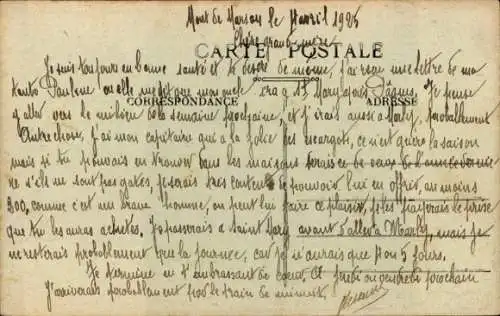 Mont de Marsan le avril 1925
Chère grand-mère
CARTE POSTALE
Je suis toujours en bonne santé et te désire de même, j'ai reçu une lettre de ma
tante Pauline ou elle me dit que mon
CORRESPONDANCE
ADRESSE
Pâques, Je pense
d'aller vers le milieu de la semaine prochaine, et j'irais aussi a probablement
Autre chose, j'ai mon capitaine qui a la folie des escargots, ce n'est guère la saison
mais si tu pouvais en trouver dans les maisons
ne s'ils ne sont pas gatés, je serais très content de pouvoir lui en offrir, au moins
300, comme c'est un brave homme, on peut lui faire ce plaisir, je les payerais le prise
que tu les auras achetés. Je passerais a Saint avant d'aller a mais je
ne resterais probablement que la journée, car je n'aurais que 4 ou 5 jours.
Je termine en t'embrassant de coeur, et jeudi ou vendredi prochain
J'arriverais probablement par le train de minuit